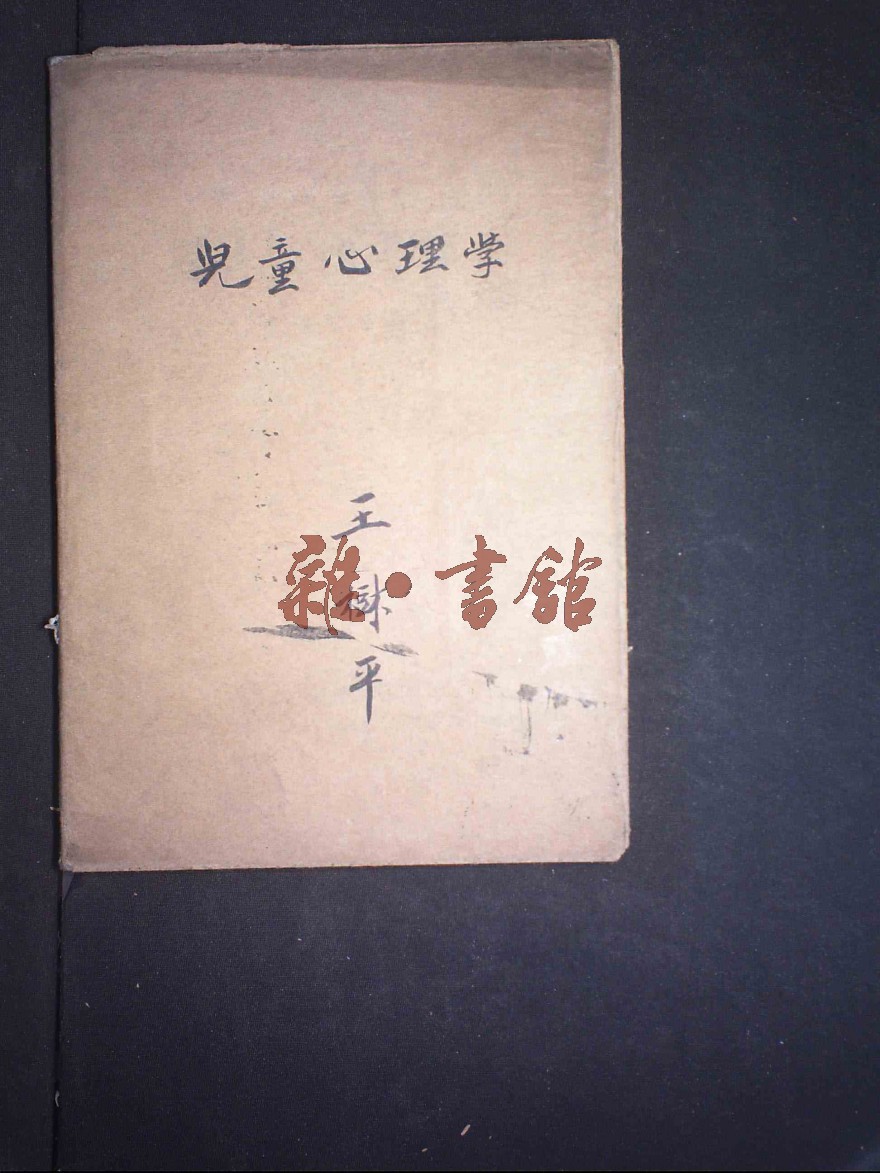 児童心理学
王
樹
平
雜·書館